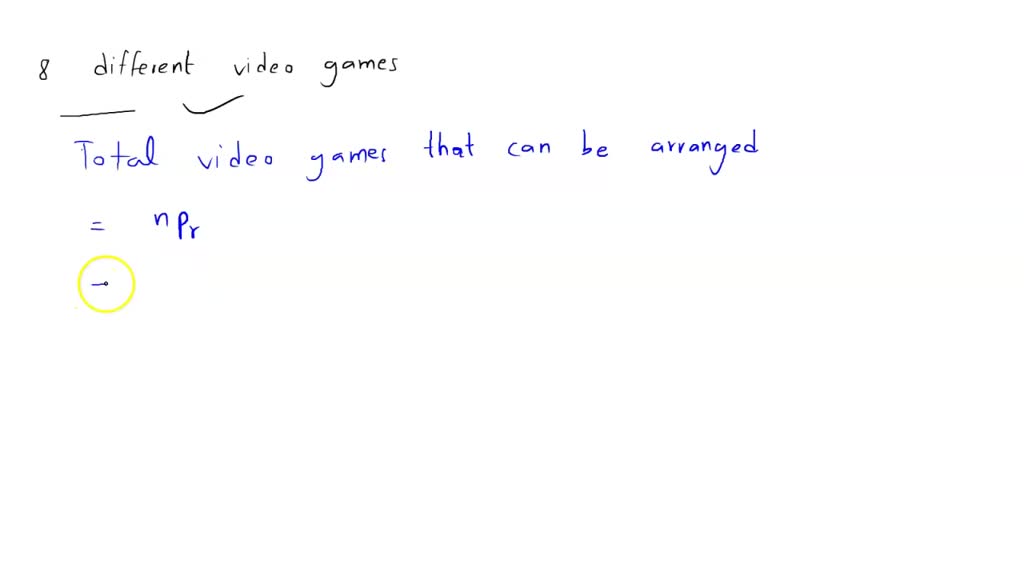 8 different video games
Total video games that can be arranged
= nPr